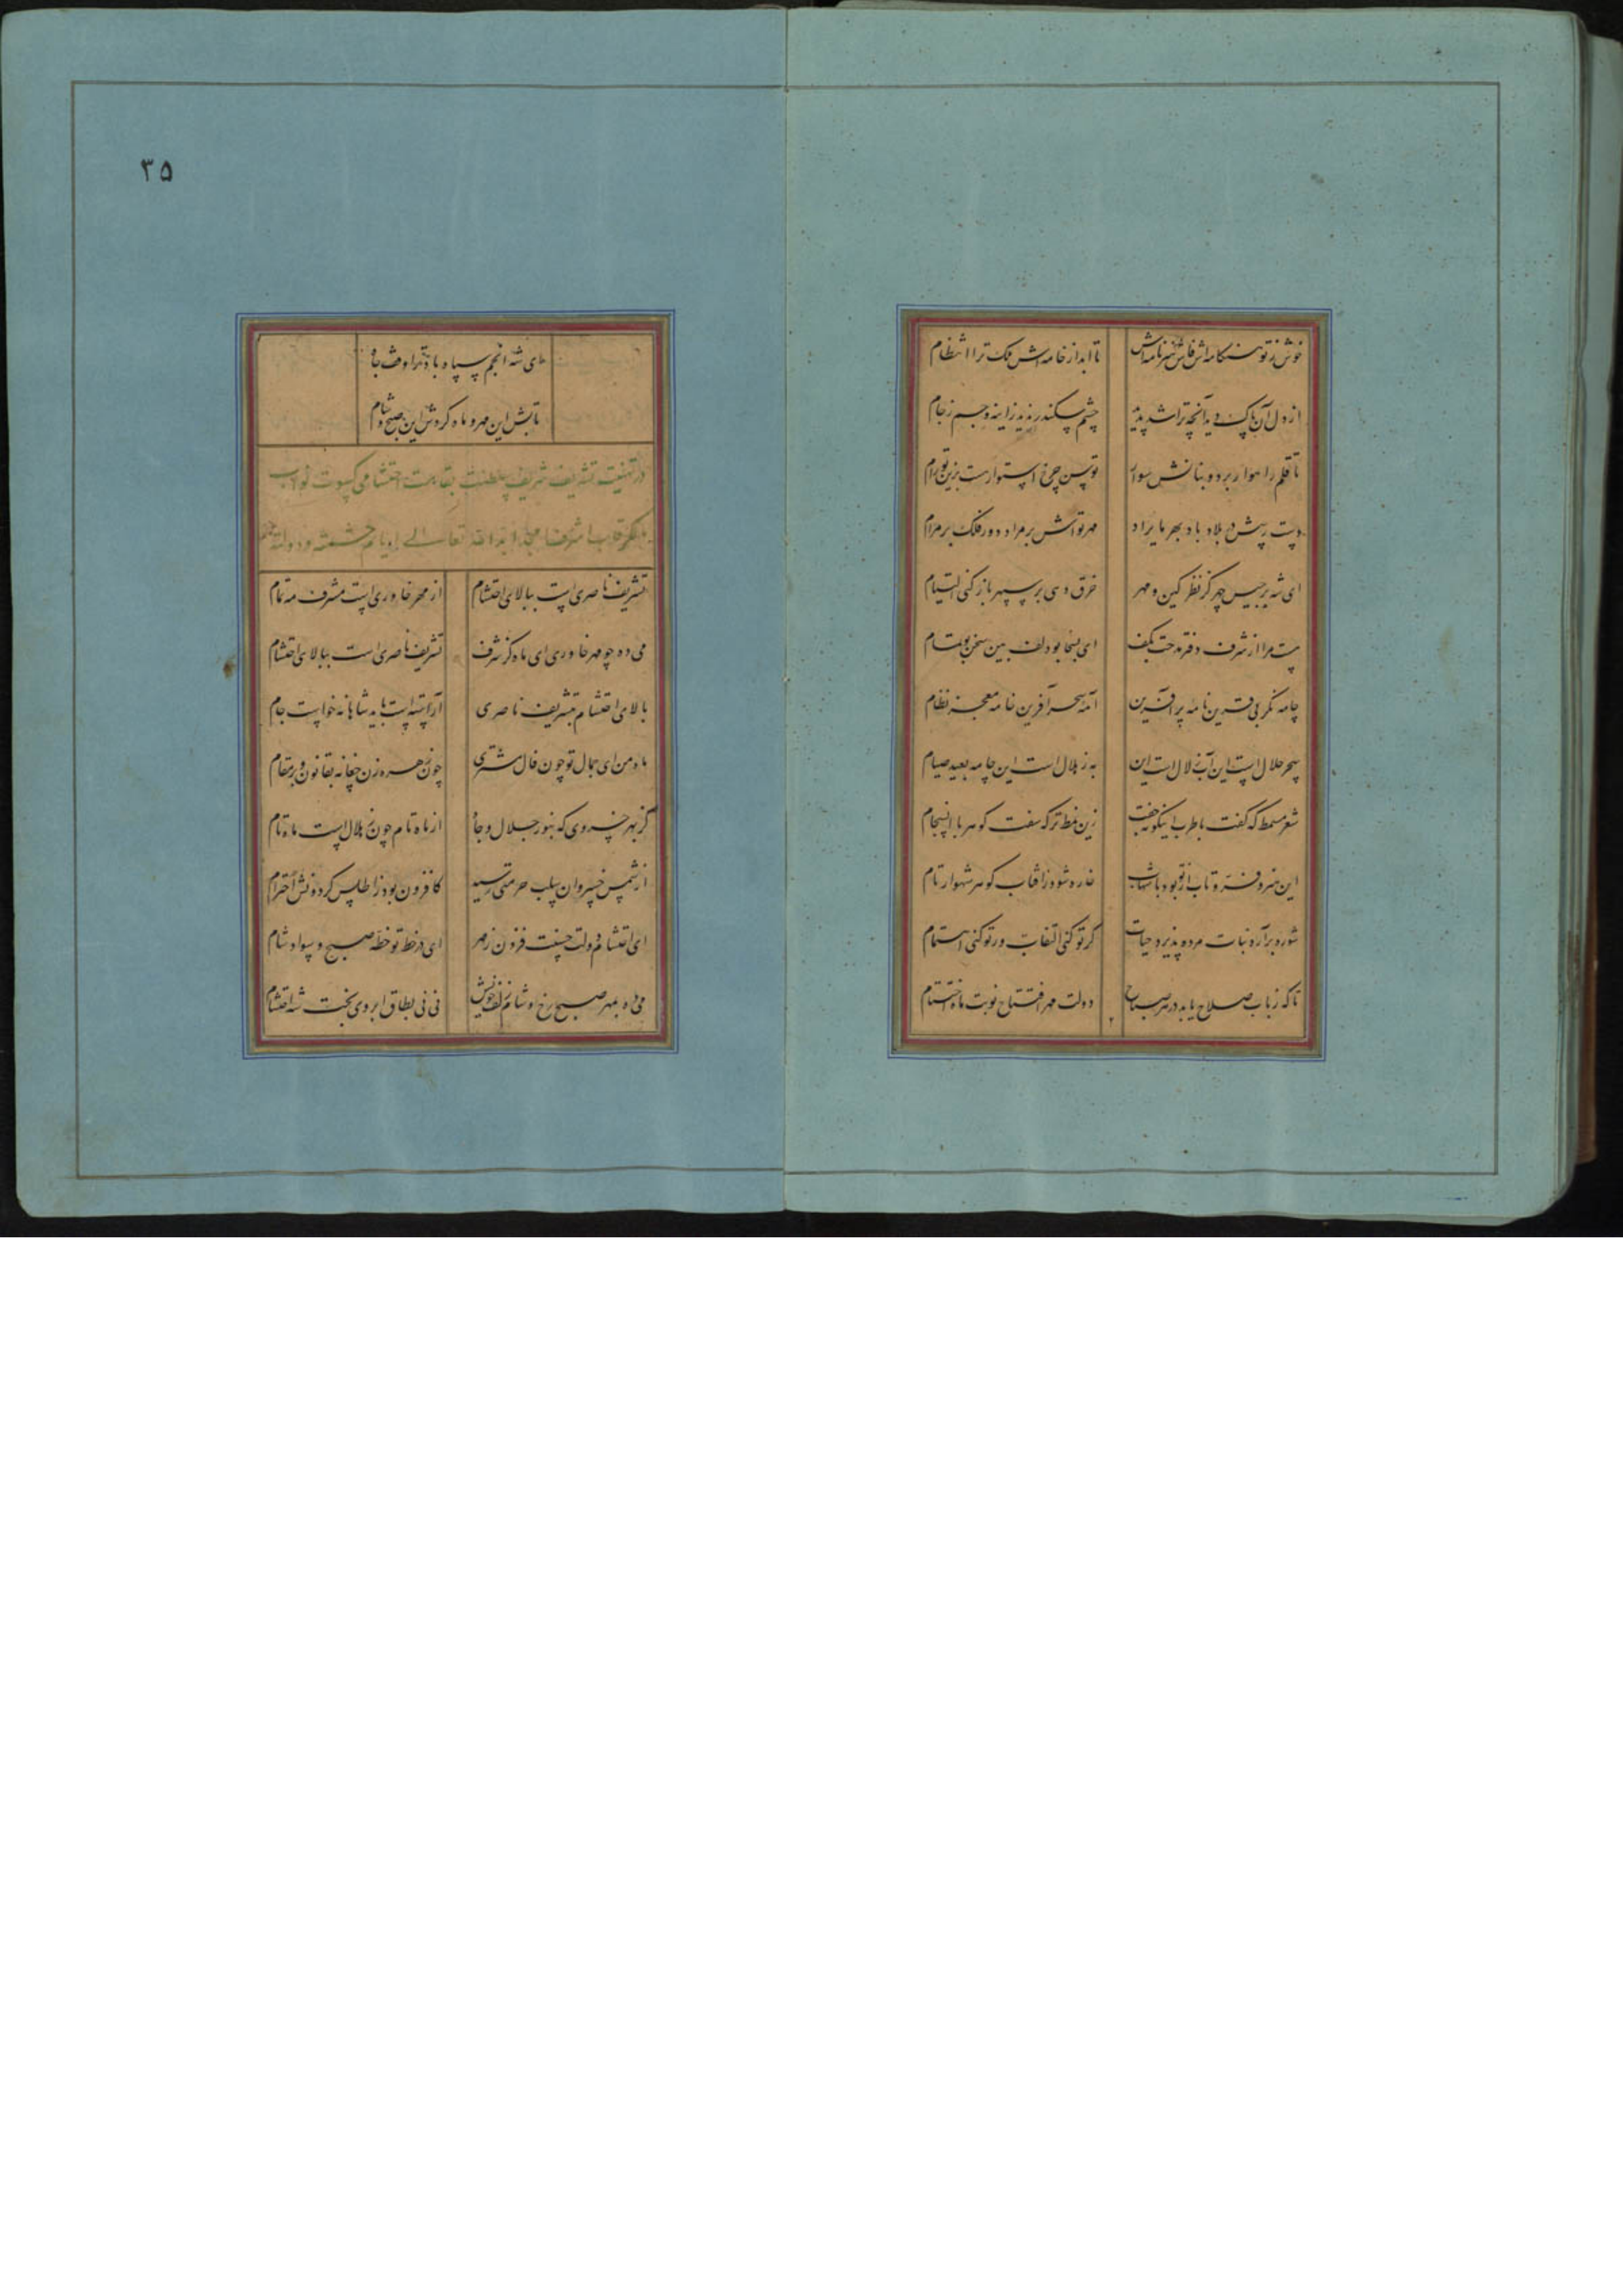 خوش ز تو هنگامه اش فاش هنرنامه اش
تا ابد از خامه اش ملک ترا انتظام
از دل آن پاک دید آنچه ترا شد پدید
چشم سکندر ندید ز اینه و جم ز جام
تا قلم راهوار برد و بنانش سوار
توسن چرخ استوارست بزین تو رام
باد بهر بامداد
مهر تواش بر مراد دور فلک بر مرام
ای شه برجیس چهر گر نظر کین و مهر
خرق دهی بر سپهر باز کنی التیام
هست مرا از شرف دفتر مدحت بکف
ای بسخا بو دلف بین سخن بو تمام
چامه نگر بی قرین نامه پر آفرین
آمه سحر آفرین خامه معجز نظام
سحر حلال است این آب زلال است این
به ز هلال است این چامه بعید صیام
شعر مسمط که گفت با طرب اینگونه جفت
زین نمط تر که سفت گوهر با انسجام
این هنر و فر و تاب از تو بود با شهاب
خاره شود ز آفتاب گوهر شهوار تام
شوره بر آرد نبات مرده پذیرد حیات
گر تو کنی التفات ور تو کنی اهتمام
تا که ز باب صلاح یابد در هر صباح
دولت مهر افتتاح نوبت ماه اختتام
۳۵
ای شه انجم سپاه باد ترا وقف جاه
تابش این مهر و ماه گردش این صبح و شام
در تهنیت تشریف شریف سلطنت بقامت احتشامی کسوت نواب
تشریف ناصری است ببالای احتشام
از مهر خاوری است مشرف مه تمام
می ده چو مهر خاوری ای ماه کز شرف
تشریف ناصری است ببالای احتشام
بالای احتشام بتشریف ناصری
آراسته است باید شاهانه خواست جام
ماه من ای جمال تو چون فال مشتری
چون زهره زن چغانه بقانون و بر مقام
کز بهر خسروی که بنور جلال و جاه
از ماه تا م چون هلال است ماه تام
از شمس خسروان سلب حرمتی رسید
کافزون بود ز اطلس گردونش احترام
ای احتشام دولت حسنت فزون ز مهر
ای در خط تو خطه صبح و سواد شام
می ده بمهر صبح رخ و شام زلف خویش
نی نی بطاق ابروی بخت شه احتشام